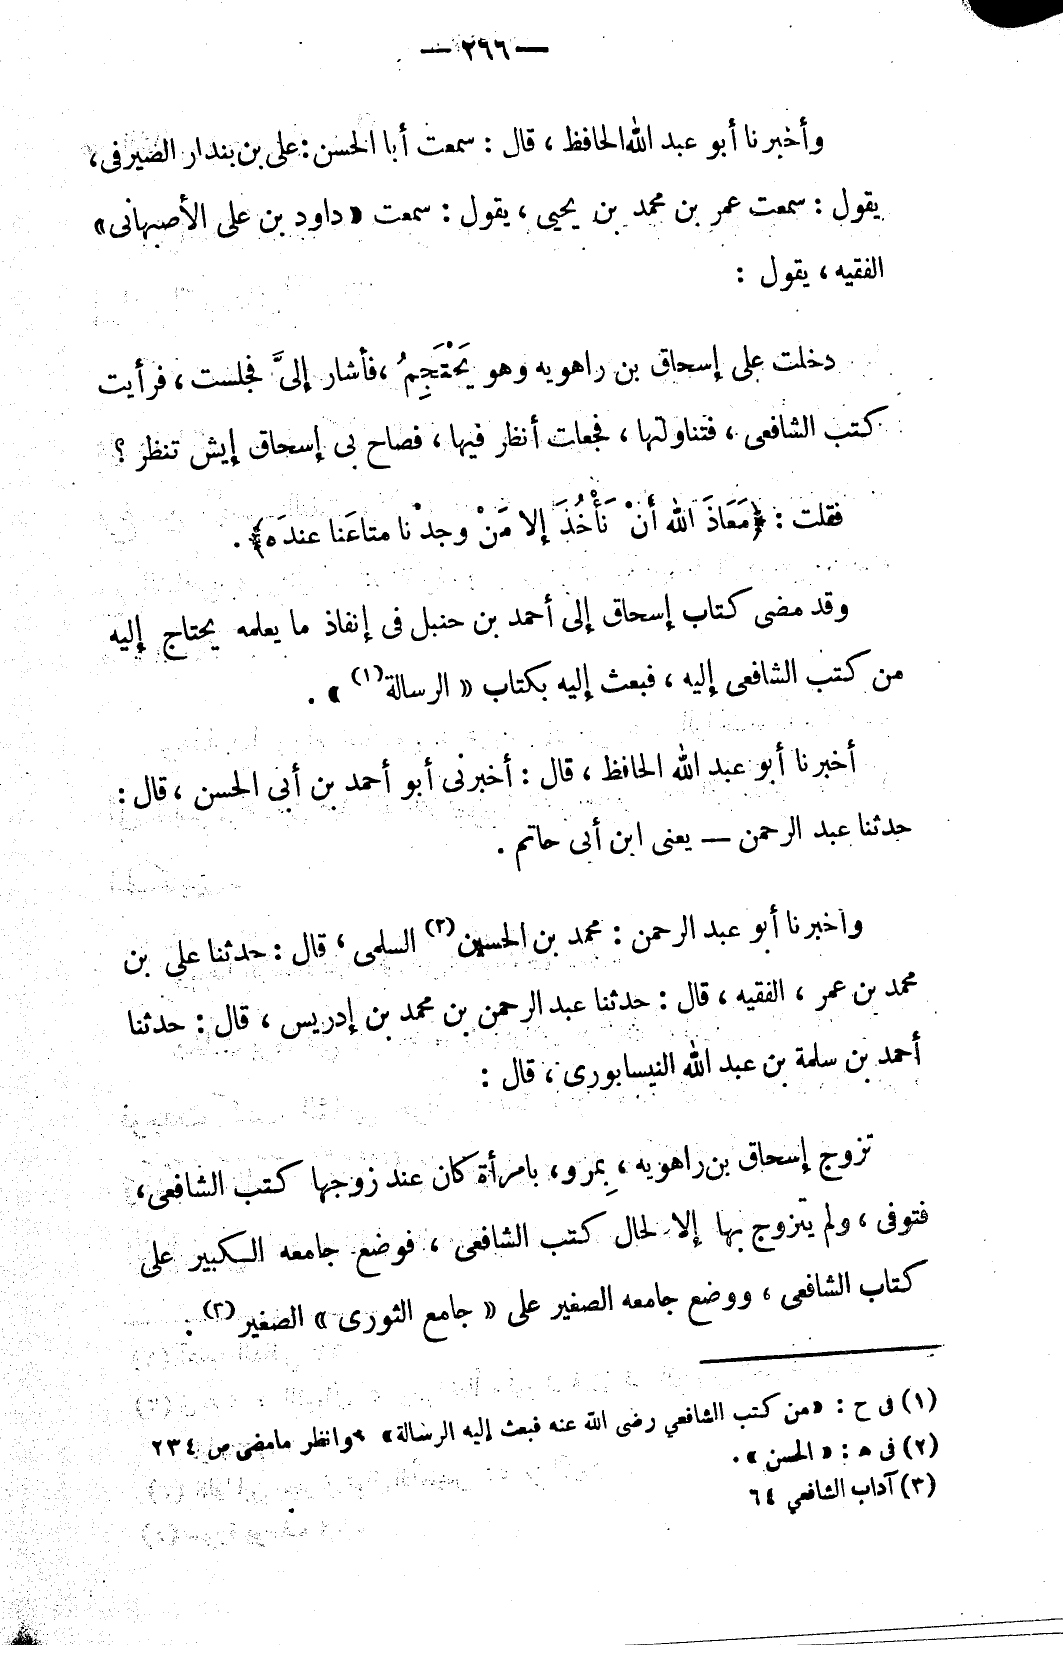 — ٢٩٦ —
وأخبرنا أبو عبد الله الحافظ ، قال : سمعت أبا الحسن : على بن بندار الصيرفى ،
يقول : سمعت عمر بن محمد بن يحيى ، يقول : سمعت « داود بن على الأصبهانى »
الفقيه ، يقول :
دخلت على إسحاق بن راهويه وهو يَحْتَجِمُ ، فأشار إلىَّ فجلست ، فرأيت
كتب الشافعى ، فتناولتها ، فجعلت أنظر فيها ، فصاح بى إسحاق إيش تنظر ؟
فقلت : ﴿مَعَاذَ الله أَنْ نَأْخُذَ إلا مَنْ وجدْنا متاعَنا عندَه﴾ .
وقد مضى كتاب إسحاق إلى أحمد بن حنبل فى إنفاذ ما يعلمه يحتاج إليه
من كتب الشافعى إليه ، فبعث إليه بكتاب « الرسالة (١) » .
أخبرنا أبو عبد الله الحافظ ، قال : أخبرنى أبو أحمد بن أبى الحسن ، قال :
حدثنا عبد الرحمن — يعنى ابن أبى حاتم .
وأخبرنا أبو عبد الرحمن : محمد بن الحسين (٢) السلمى ، قال : حدثنا على بن
محمد بن عمر ، الفقيه ، قال : حدثنا عبد الرحمن بن محمد بن إدريس ، قال : حدثنا
أحمد بن سلمة بن عبد الله النيسابورى ، قال :
تزوج إسحاق بن راهويه ، بِمرو ، بامرأة كان عند زوجها كتب الشافعى ،
فتوفى ، ولم يتزوج بها إلا لحال كتب الشافعى ، فوضع جامعه الكبير على
كتاب الشافعى ، ووضع جامعه الصغير على « جامع الثورى » الصغير (٣) :
(١) فى ح : « من كتب الشافعي رضى الله عنه فبعث إليه الرسالة » وانظر مامضى ص ٢٣٤
(٢) فى ه : « الحسن » .
(٣) آداب الشافعي ٦٤